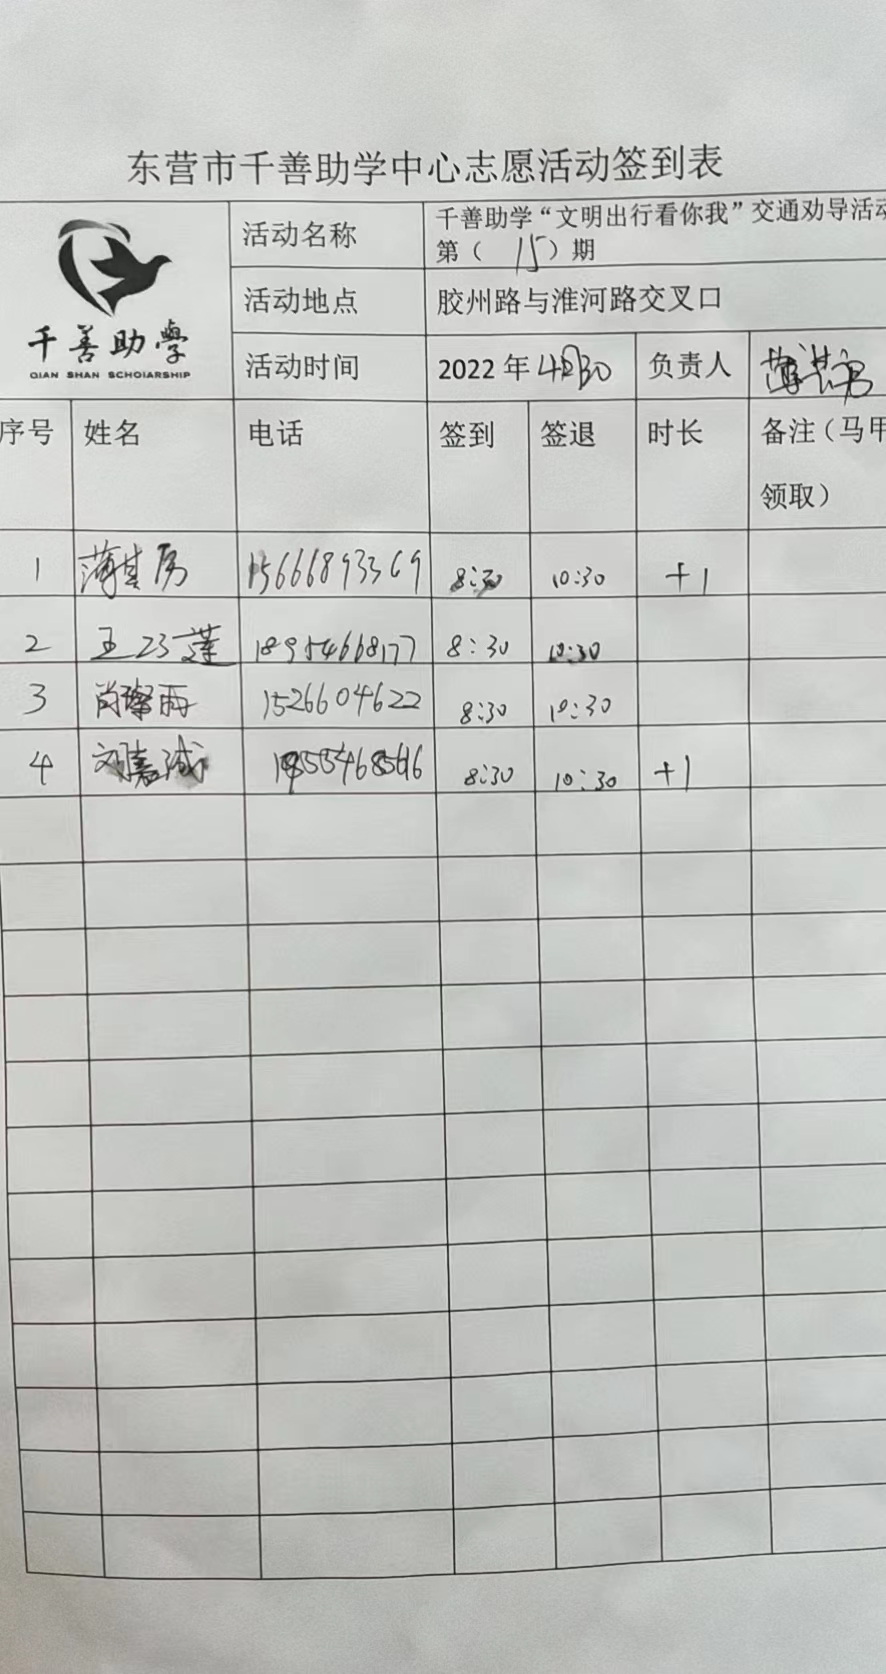 东营市千善助学中心志愿活动签到表
千善助學
QIAN SHAN SCHOIARSHIP
活动名称 千善助学“文明出行看你我”交通劝导活动
第（ 15 ）期
活动地点 胶州路与淮河路交叉口
活动时间 2022 年 4月30 负责人
序号 姓名 电话 签到 签退 时长 备注（马甲
领取）
1 薄其厉 15666893369 8:30 10:30 +1
2 王巧莲 18954668177 8:30 10:30
3 肖璨雨 1526604622 8:30 10:30
4 刘嘉诚 8:30 10:30 +1